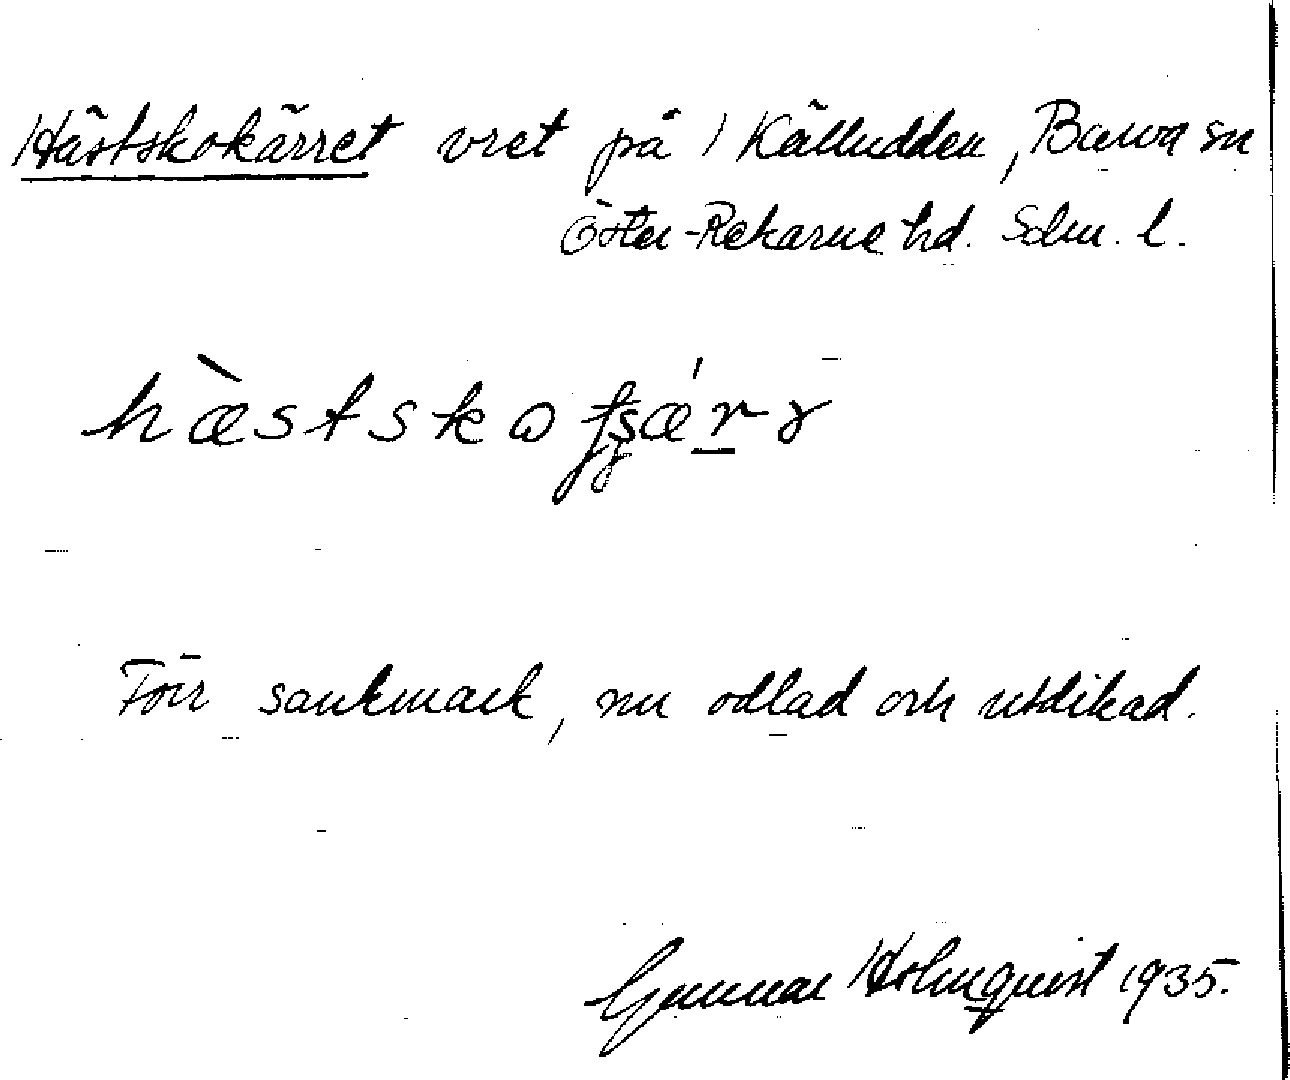 Hästskokärret vret på 1 Källudden, Barva sn
Öster-Rekarne hd. Södm. l.
hæ̀stskoʈʂǽr
Förr sankmark, nu odlad och utdikad.
Gunnar Holmquist 1935.